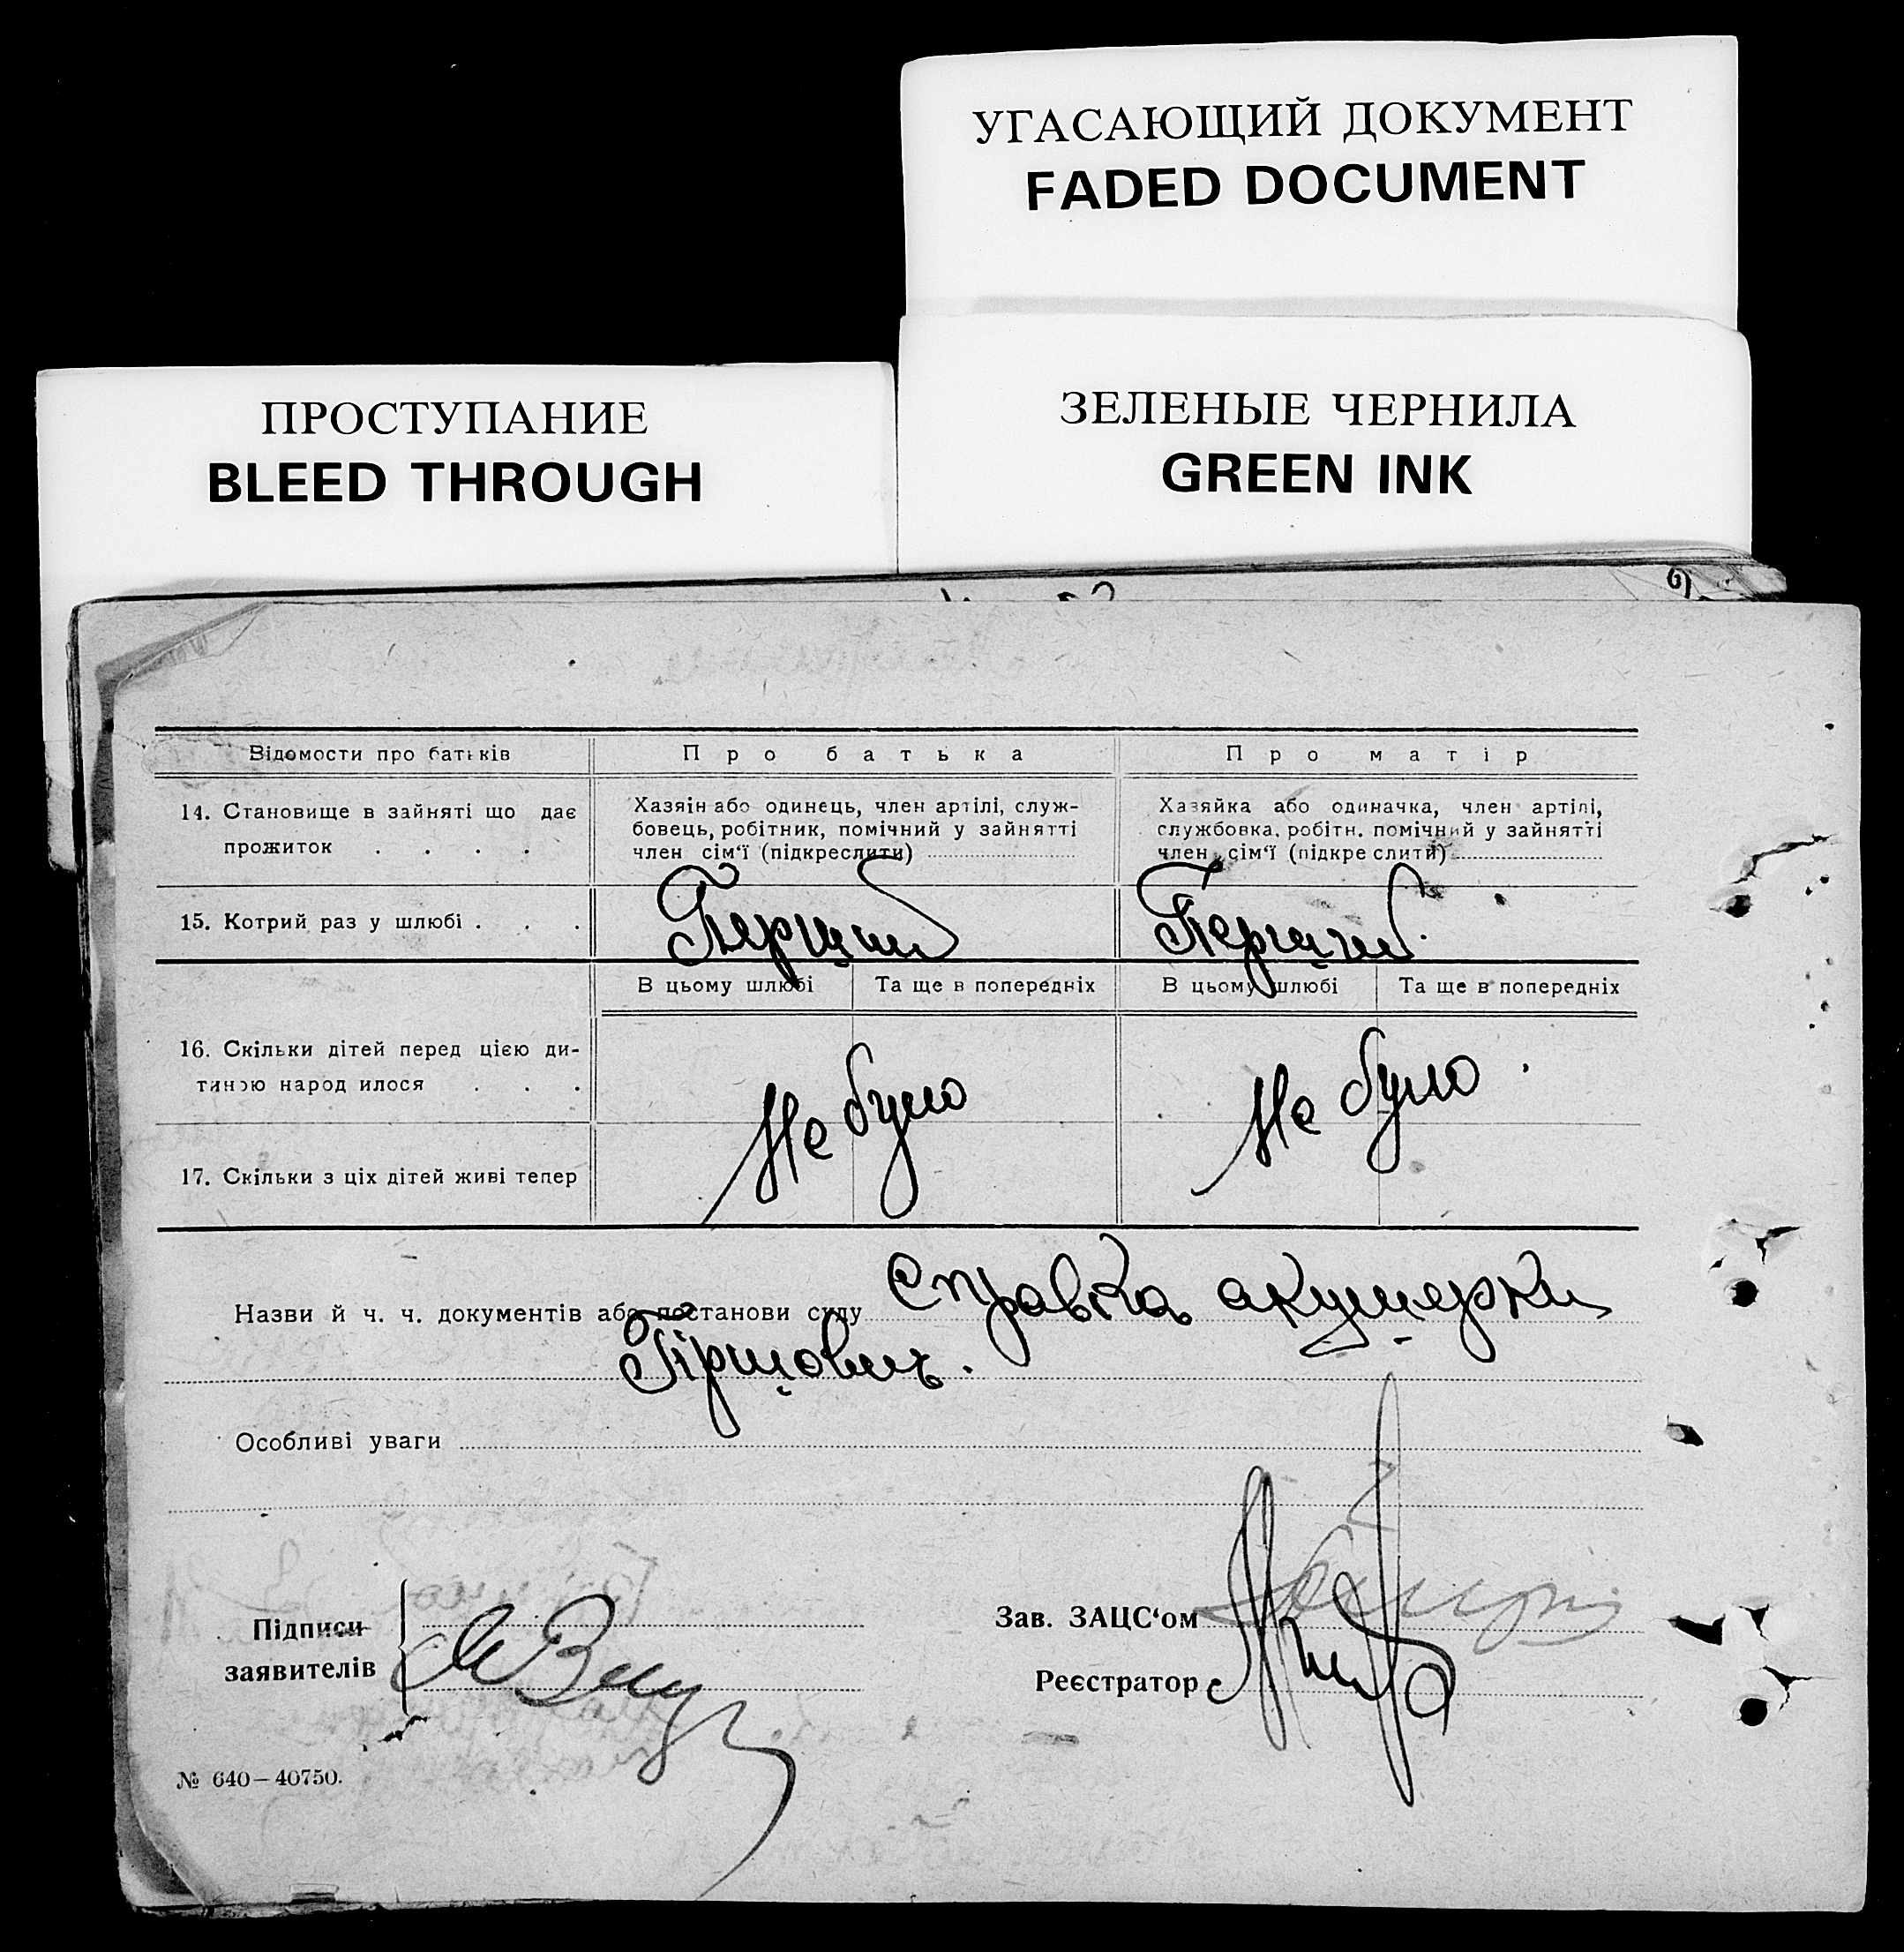 УГАСАЮЩИЙ ДОКУМЕНТ
FADED DOCUMENT
ПРОСТУПАНИЕ
BLEED THROUGH
ЗЕЛЕНЫЕ ЧЕРНИЛА
GREEN INK
Відомости про батьків
Про батька
Про матір
14. Становище в зайняті що дає
прожиток . . . .
Хазяін або одинець, член артілі, служ-
бовець, робітник, помічний у зайнятті
член сім‘ї (підкреслити)
Хазяйка або одиначка, член артілі,
службовка, робітн. помічний у зайнятті
член сім‘ї (підкреслити)
15. Котрий раз у шлюбі . . .
Перший
Перший
В цьому шлюбі
Та ще в попередніх
В цьому шлюбі
Та ще в попередніх
16. Скільки дітей перед цією ди-
тиною народилося . . .
Не було
Не було
17. Скільки з ціх дітей живі тепер
Назви й ч. ч. документів або постанови суду Справка акушерки
Гіршович.
Особливі уваги
Підписи
заявителів
Зав. ЗАЦС‘ом
Реєстратор
№ 640—40750.